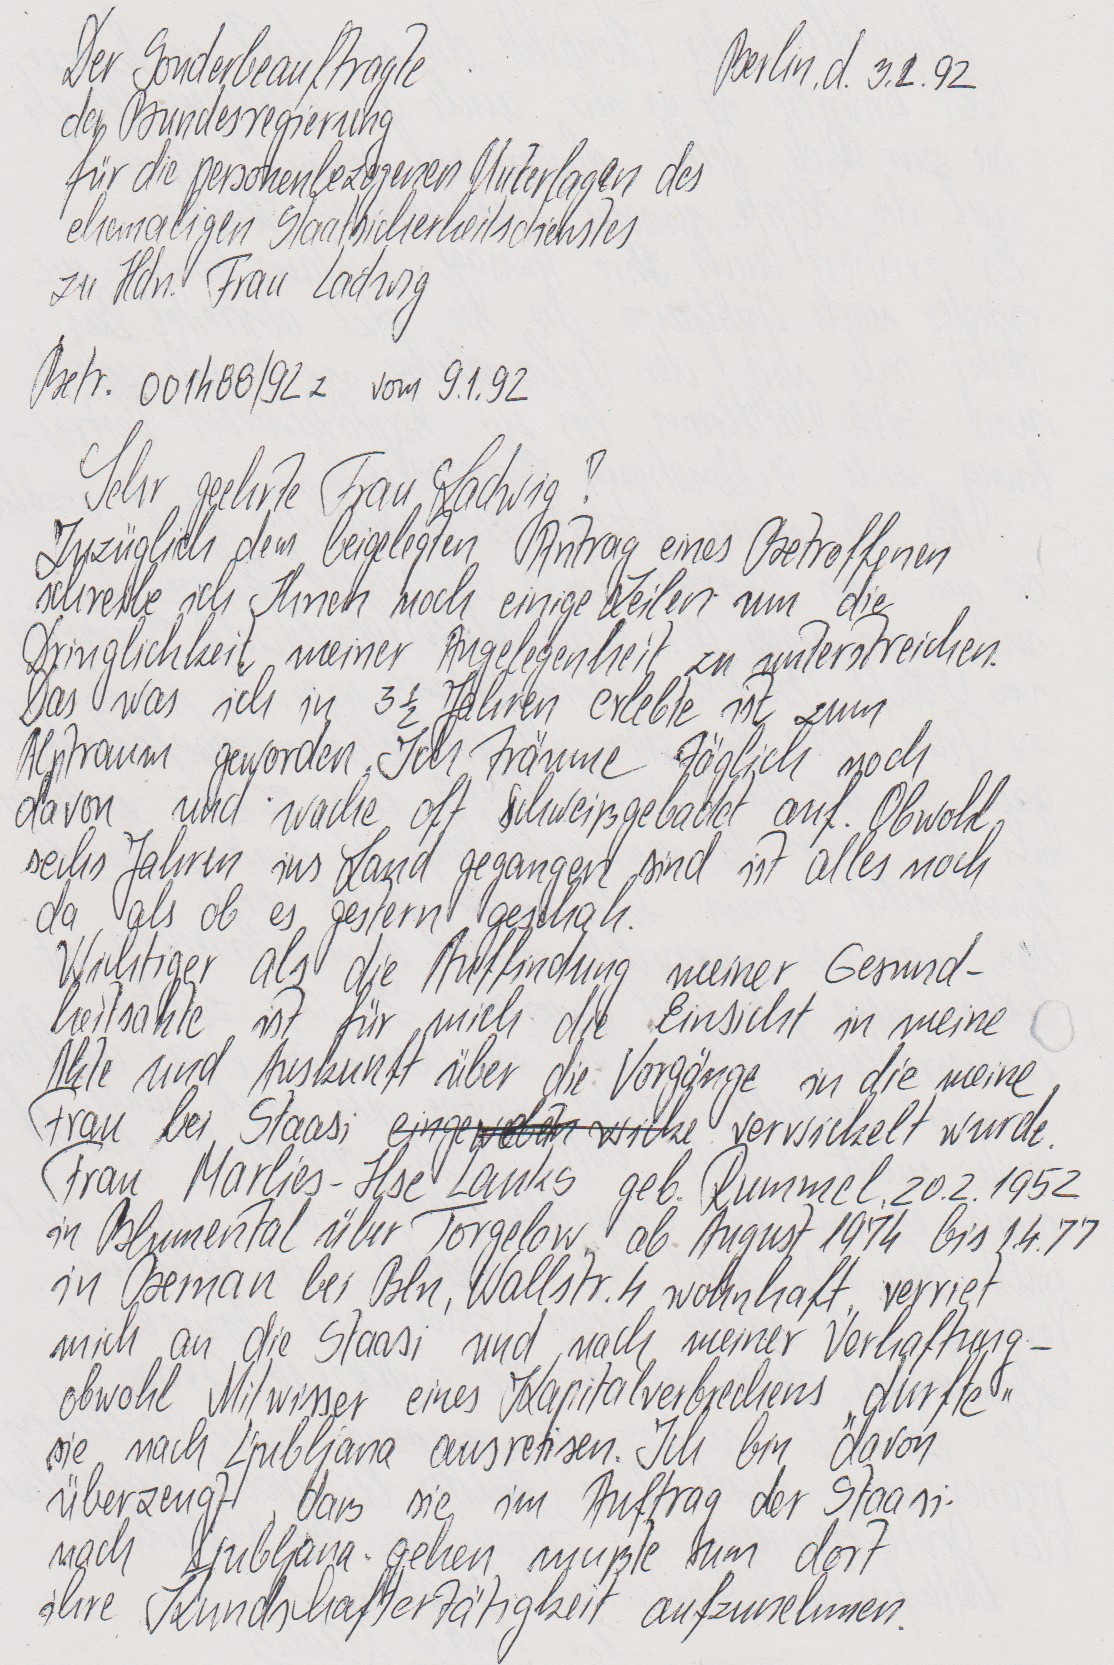 Der Sonderbeauftragte Berlin, d. 3.2.92
der Bundesregierung
für die personenbezogenen Unterlagen des
ehemaligen Staatsicherheitsdienstes
zu Hdn. Frau Ladwig
Betr. 001488/92 z vom 9.1.92
Sehr geehrte Frau Ladwig!
Inzüglich dem beigelegten Antrag eines Betroffenen
schreibe ich Ihnen noch einige Zeilen um die
Dringlichkeit meiner Angelegenheit zu unterstreichen.
Das was ich in 3 1/2 Jahren erlebte ist zum
Alptraum geworden. Ich träume täglich noch
davon und wache oft schweißgebadet auf. Obwohl
sechs Jahren ins Land gegangen sind ist alles noch
da als ob es gestern geschah.
Wichtiger als die Auffindung meiner Gesund-
heitsakte ist für mich die Einsicht in meine
Akte und Auskunft über die Vorgänge in die meine
Frau bei Staasi verwickelt wurde.
Frau Marlies-Ilse Lanks geb. Rummel, 20.2.1952
in Blumental über Torgelow, ab August 1974 bis 1.4.77
in Bernau bei Bln, Wallstr. 4 wohnhaft, verriet
mich an die Staasi und nach meiner Verhaftung -
obwohl Mitwisser eines Kapitalverbrechens „durfte"
sie nach Ljubljana ausreisen. Ich bin davon
überzeugt, dass sie im Auftrag der Staasi
nach Ljubljana gehen mußte um dort
ihre Kundschaftertätigkeit aufzunehmen.